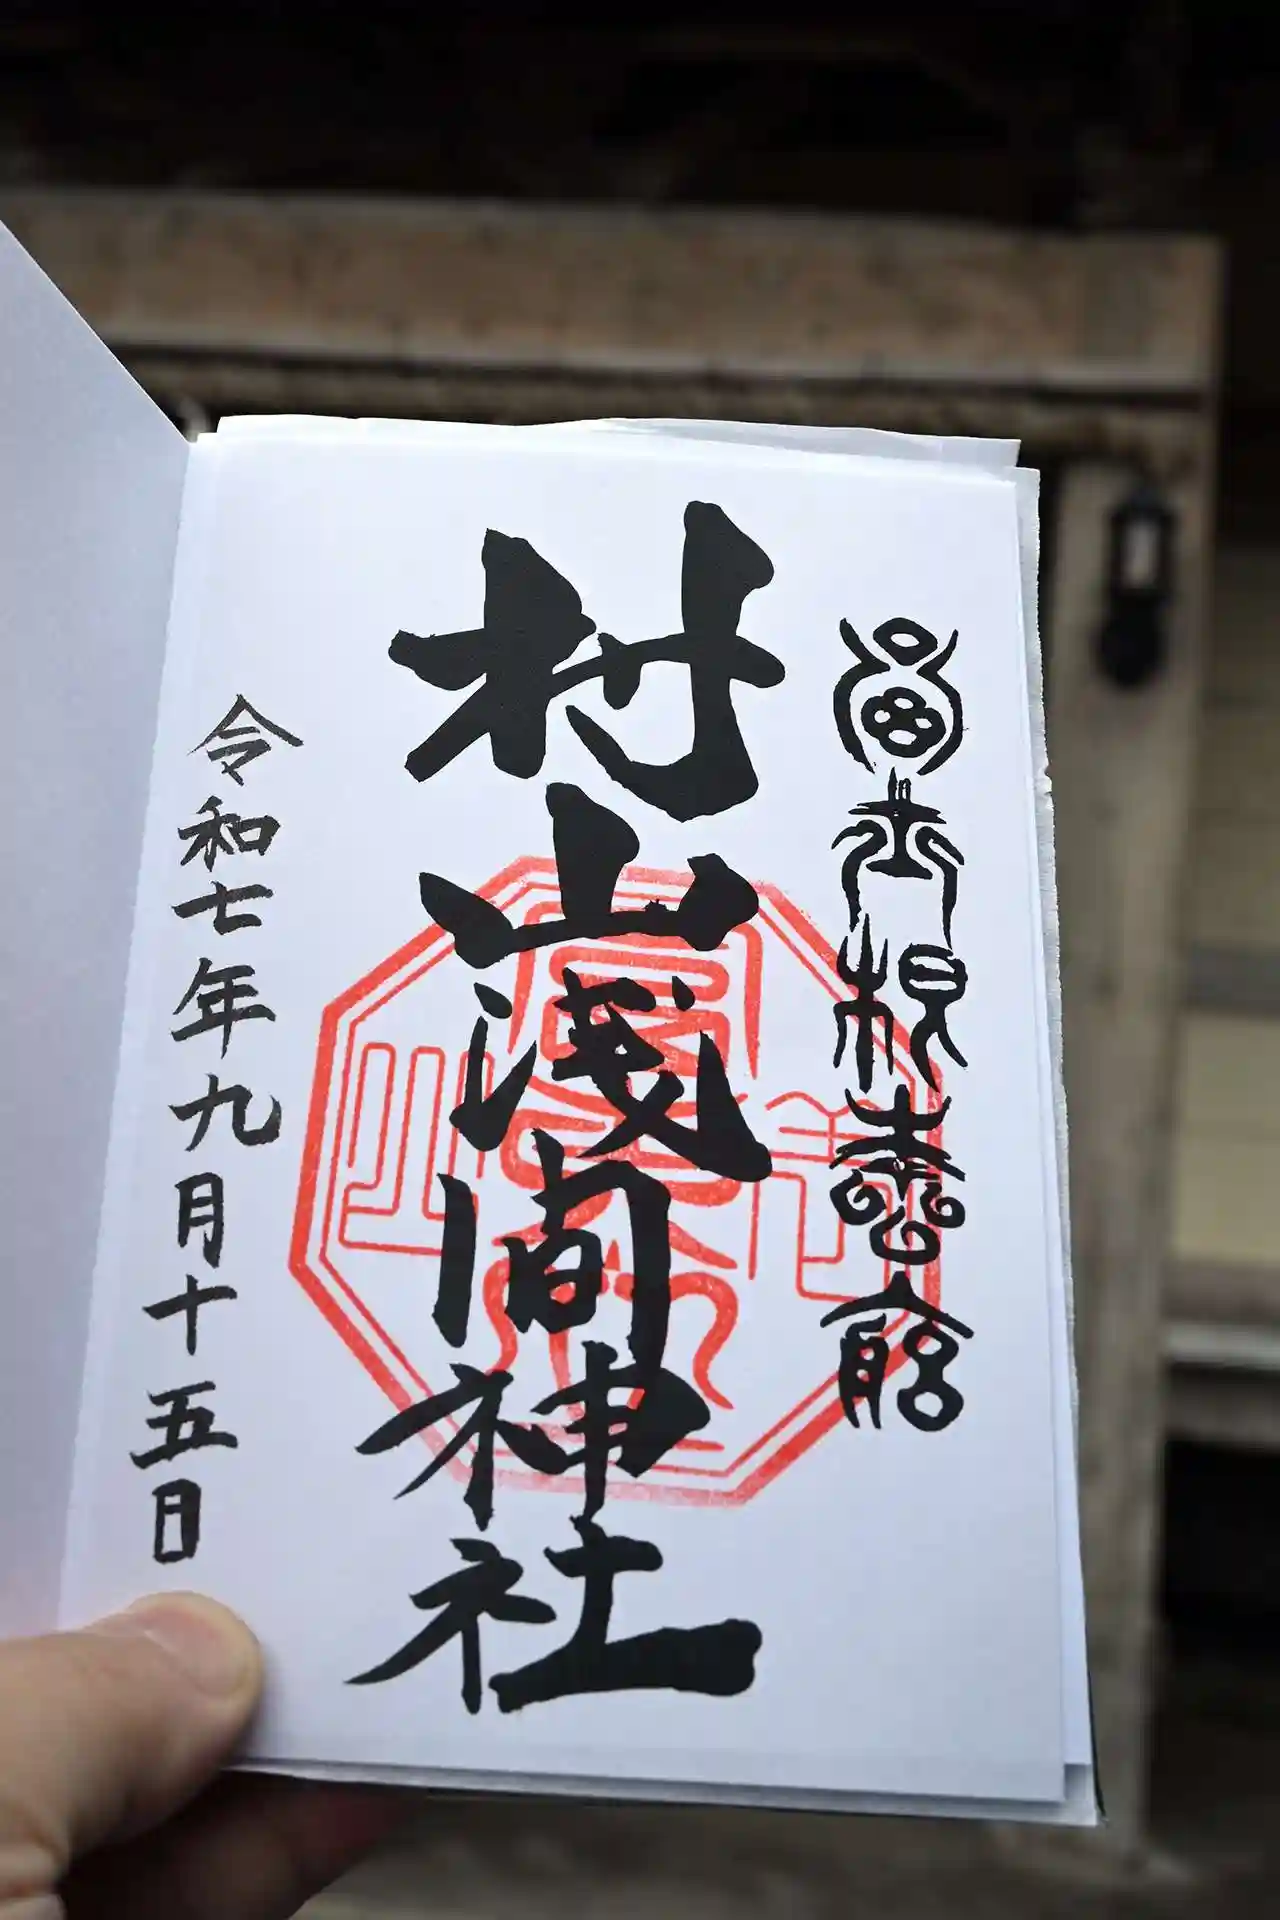 富士根本宮
村山浅間神社
令和七年九月十五日